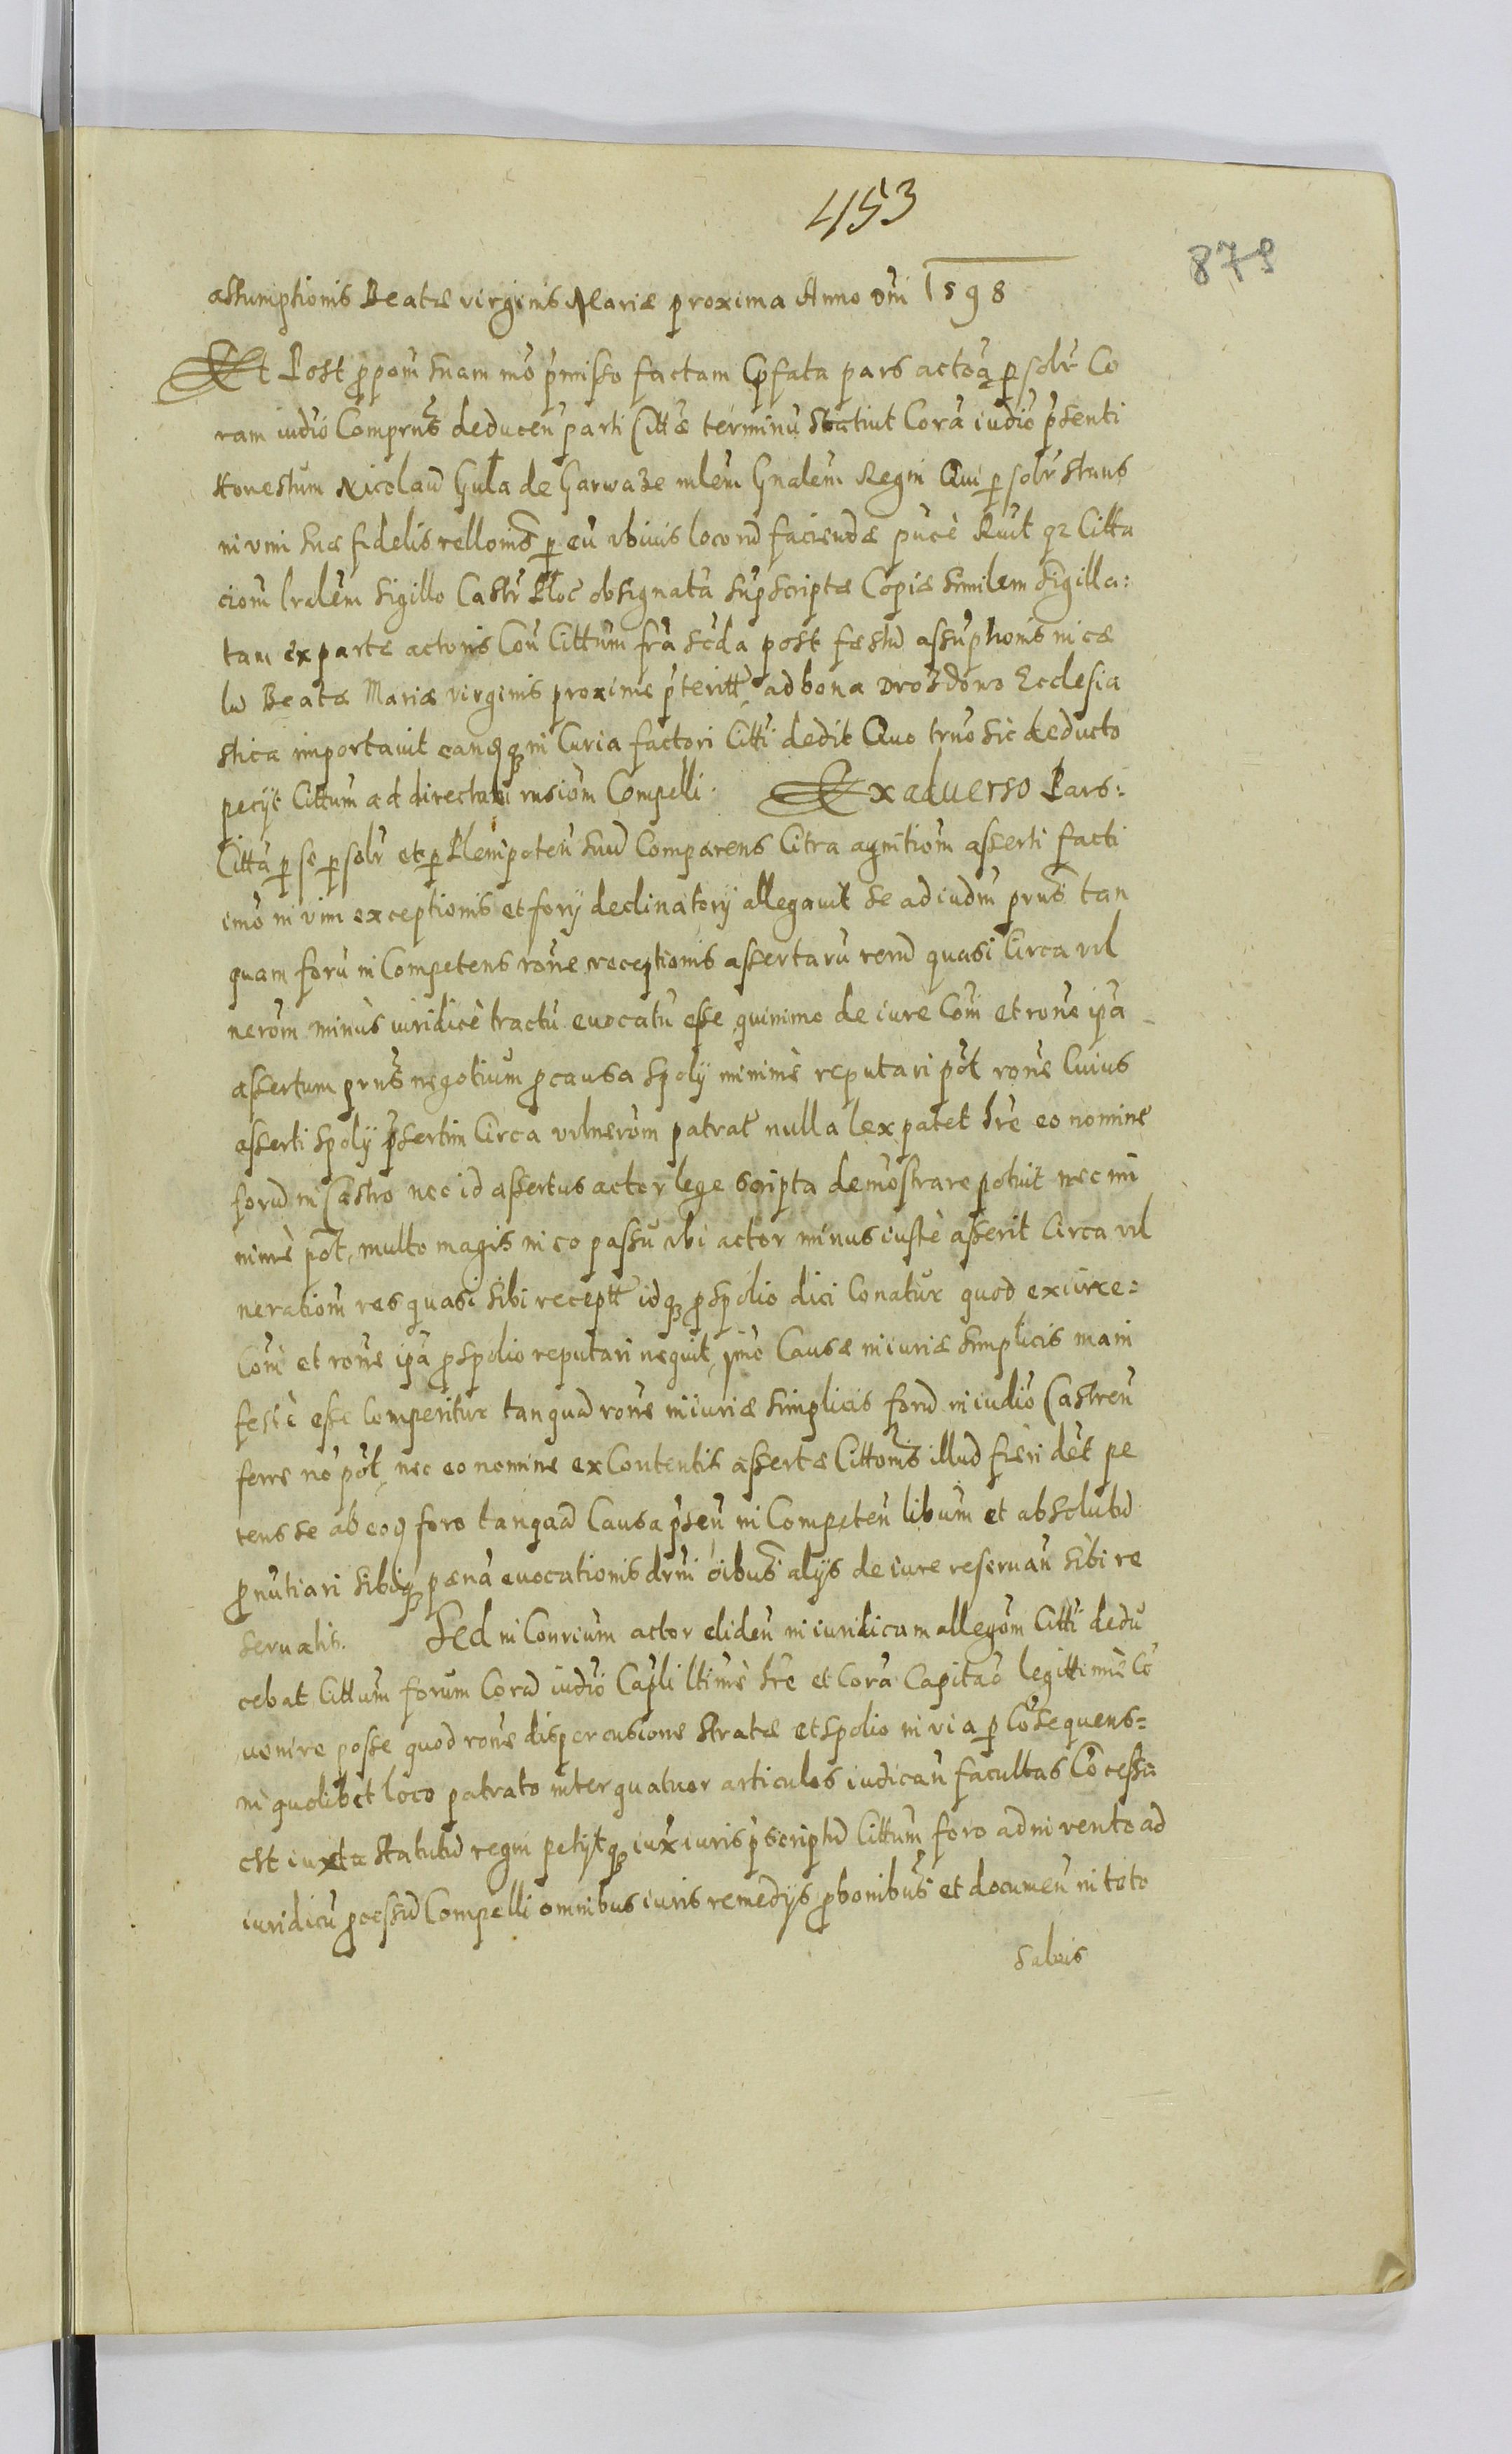 453
879
assumptionis Beatæ virginis Mariæ proxima Anno dni 1598
Et Post ppom suam mo pmisso factam Prfata pars actoą p solr Co
ram iudio Comprns deducen parti Cittæ terminu statuit Cora iudio psenti
Honestum Nicolau Gula de Garwaze mlem Gnalem Regni Qui p solr stans
in vim suæ fidelis rellonis p eu ubiuis locoru faciendæ puce Ruit qz Citta
ciom lralem sigillo Castr Ploc obsignata supscriptæ Copiæ similem sigilla:
tam ex parte actoris Con Cittum fra scda post festu assuptionis in cæ
lu Beatæ Mariæ virginis proxime pteritt ad bona Drozdowo Ecclesia
stica importauit eanqz in Curia factori Citti dedit Quo trno sic deducto
pecijt Cittum ad directam rnsiom Compelli. Ex aduerso Pars:
Citta p se p solr et p Plenipoten suu Comparens Citra agnitiom asserti facti
imo in vim exceptionis et forij declinatorij allegauit se ad iudm prns tan
quam foru in Competens rone receptionis assertaru reru quasi Circa vul
nerom minus iuridice tractu euocatu esse quinimo de iure Com et rone ipa
assertum prns negotium p causa spolij minime reputari pot rone Cuius
asserti spolij psertim Circa vulnerom patrat nulla lex patet hre eo nomine
foru in Castro nec id assertus actor lege scripta demostrare potuit nec mi
nime pot, multo magis in eo passu ubi actor minus iuste asserit Circa vul
neratiom res quasi sibi receptt idqz p spolio dici Conatur quod ex iure:
Com et rone ipa p spolio reputari nequit, ymo Causæ iniuriæ simplicis mani
feste esse Comperitur tanquã rone iniuriæ simplicis foru in iudio Castren
ferre no pot, nec eo nomine ex Contentis assertæ Cittonis illud fieri det pe
tens se ab eoq foro tanquã Causa psen in Competen libum et absolutu
pnutiari sibiqz pæna euocationis drmi oibus alijs de iure reseruan sibi re
seruatis. Sed in Conrium actor eliden in iuridicam allegom Citti dedu
cebat Cittum forum Cora iudio Capli ltime hre et Cora Capitao legittime Co
uenire posse quod rone dispercusione stratæ et spolio in via p Cosequens=
in quolibet loco patrato inter quatuor articulos iudican facultas Cocessa
est iuxta statutu regni petijtqz iux iuris pscriptu Cittum foro ad inuento ad
iuridicu pcessu Compelli omnibus iuris remedijs pbonibus et documen in toto
saluis